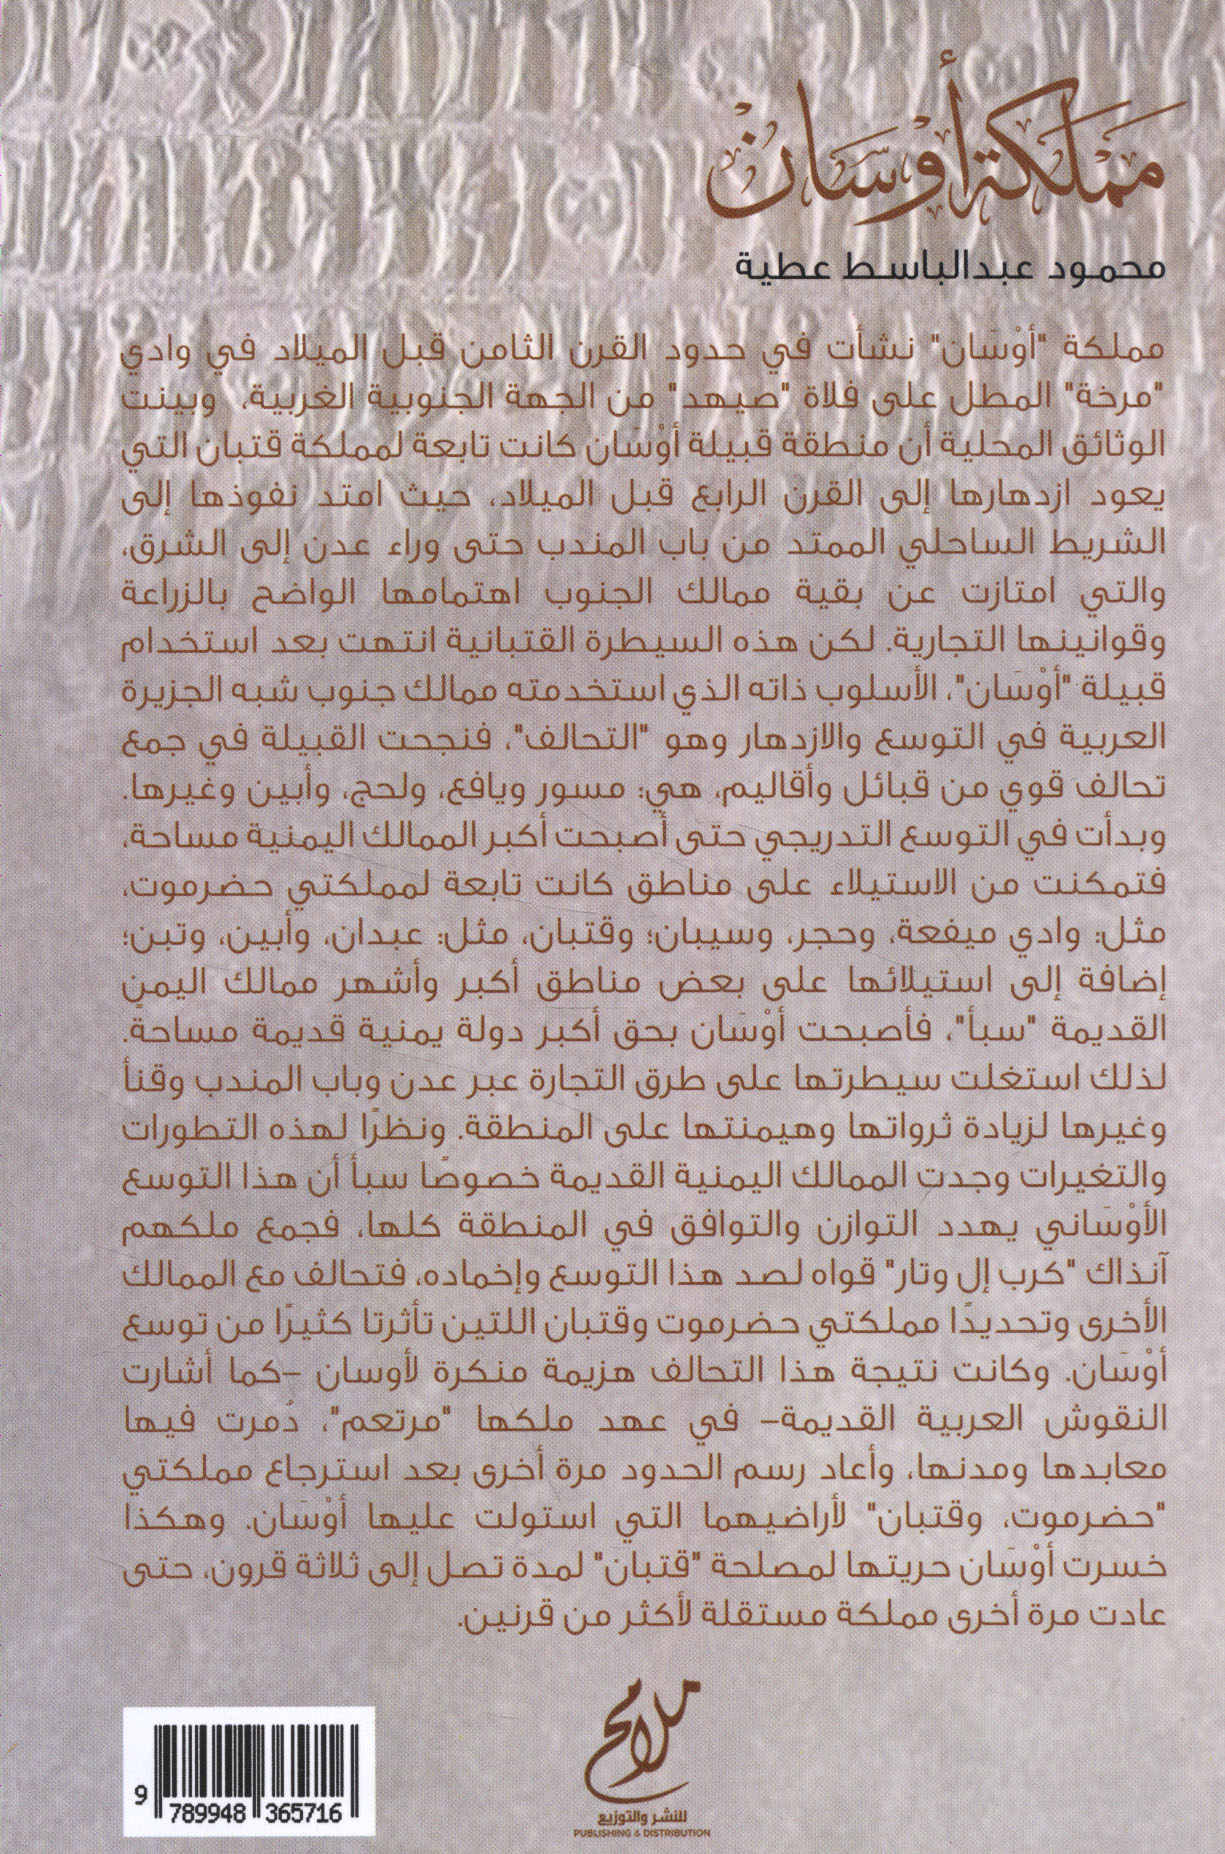 مملكة أوْسَان
محمود عبدالباسط عطية
مملكة "أوْسَان" نشأت في حدود القرن الثامن قبل الميلاد في وادي
"مرخة" المطل على فلاة "صيهد" من الجهة الجنوبية الغربية، وبينت
الوثائق المحلية أن منطقة قبيلة أوْسَان كانت تابعة لمملكة قتبان التي
يعود ازدهارها إلى القرن الرابع قبل الميلاد، حيث امتد نفوذها إلى
الشريط الساحلي الممتد من باب المندب حتى وراء عدن إلى الشرق،
والتي امتازت عن بقية ممالك الجنوب اهتمامها الواضح بالزراعة
وقوانينها التجارية. لكن هذه السيطرة القتبانية انتهت بعد استخدام
قبيلة "أوْسَان"، الأسلوب ذاته الذي استخدمته ممالك جنوب شبه الجزيرة
العربية في التوسع والازدهار وهو "التحالف"، فنجحت القبيلة في جمع
تحالف قوي من قبائل وأقاليم، هي: مسور ويافع، ولحج، وأبين وغيرها.
وبدأت في التوسع التدريجي حتى أصبحت أكبر الممالك اليمنية مساحة،
فتمكنت من الاستيلاء على مناطق كانت تابعة لمملكتي حضرموت،
مثل: وادي ميفعة، وحجر، وسيبان؛ وقتبان، مثل: عبدان، وأبين، وتبن؛
إضافة إلى استيلائها على بعض مناطق أكبر وأشهر ممالك اليمن
القديمة "سبأ"، فأصبحت أوْسَان بحق أكبر دولة يمنية قديمة مساحةً.
لذلك استغلت سيطرتها على طرق التجارة عبر عدن وباب المندب وقنأ
وغيرها لزيادة ثرواتها وهيمنتها على المنطقة. ونظرًا لهذه التطورات
والتغيرات وجدت الممالك اليمنية القديمة خصوصًا سبأ أن هذا التوسع
الأوْسَاني يهدد التوازن والتوافق في المنطقة كلها، فجمع ملكهم
آنذاك "كرب إل وتار" قواه لصد هذا التوسع وإخماده، فتحالف مع الممالك
الأخرى وتحديدًا مملكتي حضرموت وقتبان اللتين تأثرتا كثيرًا من توسع
أوْسَان. وكانت نتيجة هذا التحالف هزيمة منكرة لأوسان –كما أشارت
النقوش العربية القديمة– في عهد ملكها "مرتعم"، دُمرت فيها
معابدها ومدنها، وأعاد رسم الحدود مرة أخرى بعد استرجاع مملكتي
"حضرموت، وقتبان" لأراضيهما التي استولت عليها أوْسَان. وهكذا
خسرت أوْسَان حريتها لمصلحة "قتبان" لمدة تصل إلى ثلاثة قرون، حتى
عادت مرة أخرى مملكة مستقلة لأكثر من قرنين.
ملامح
للنشر والتوزيع
PUBLISHING & DISTRIBUTION
9 789948 365716